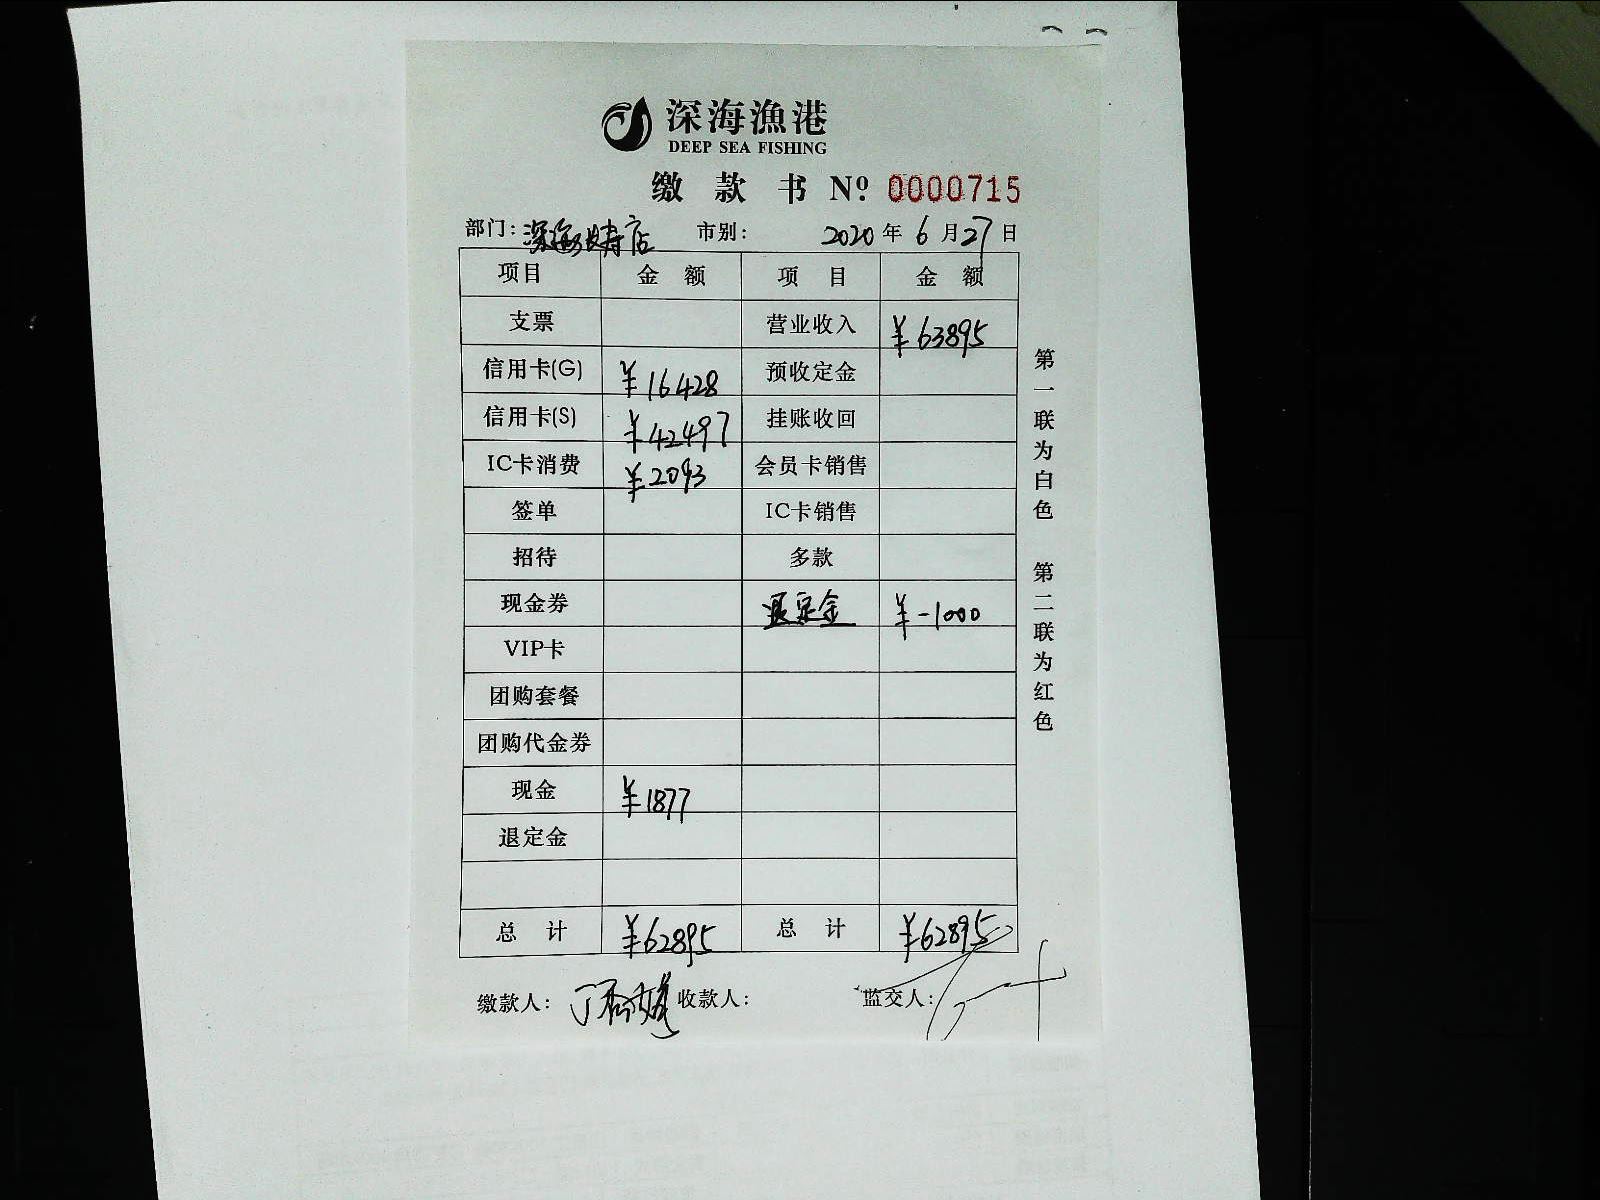 深海漁港
DEEP SEA FISHING
缴款书 Nº 0000715
部门: 深海长寿店 市别: 2020年6月27日
项目 金额 项目 金额
支票 营业收入 ¥63895
信用卡(G) ¥16428 预收定金
信用卡(S) ¥42497 挂账收回
IC卡消费 ¥2093 会员卡销售
签单 IC卡销售
招待 多款
现金券 退定金 ¥-1000
VIP卡
团购套餐
团购代金券
现金 ¥1877
退定金
总计 ¥62895 总计 ¥62895
缴款人: 收款人: 监交人:
第一联为白色 第二联为红色